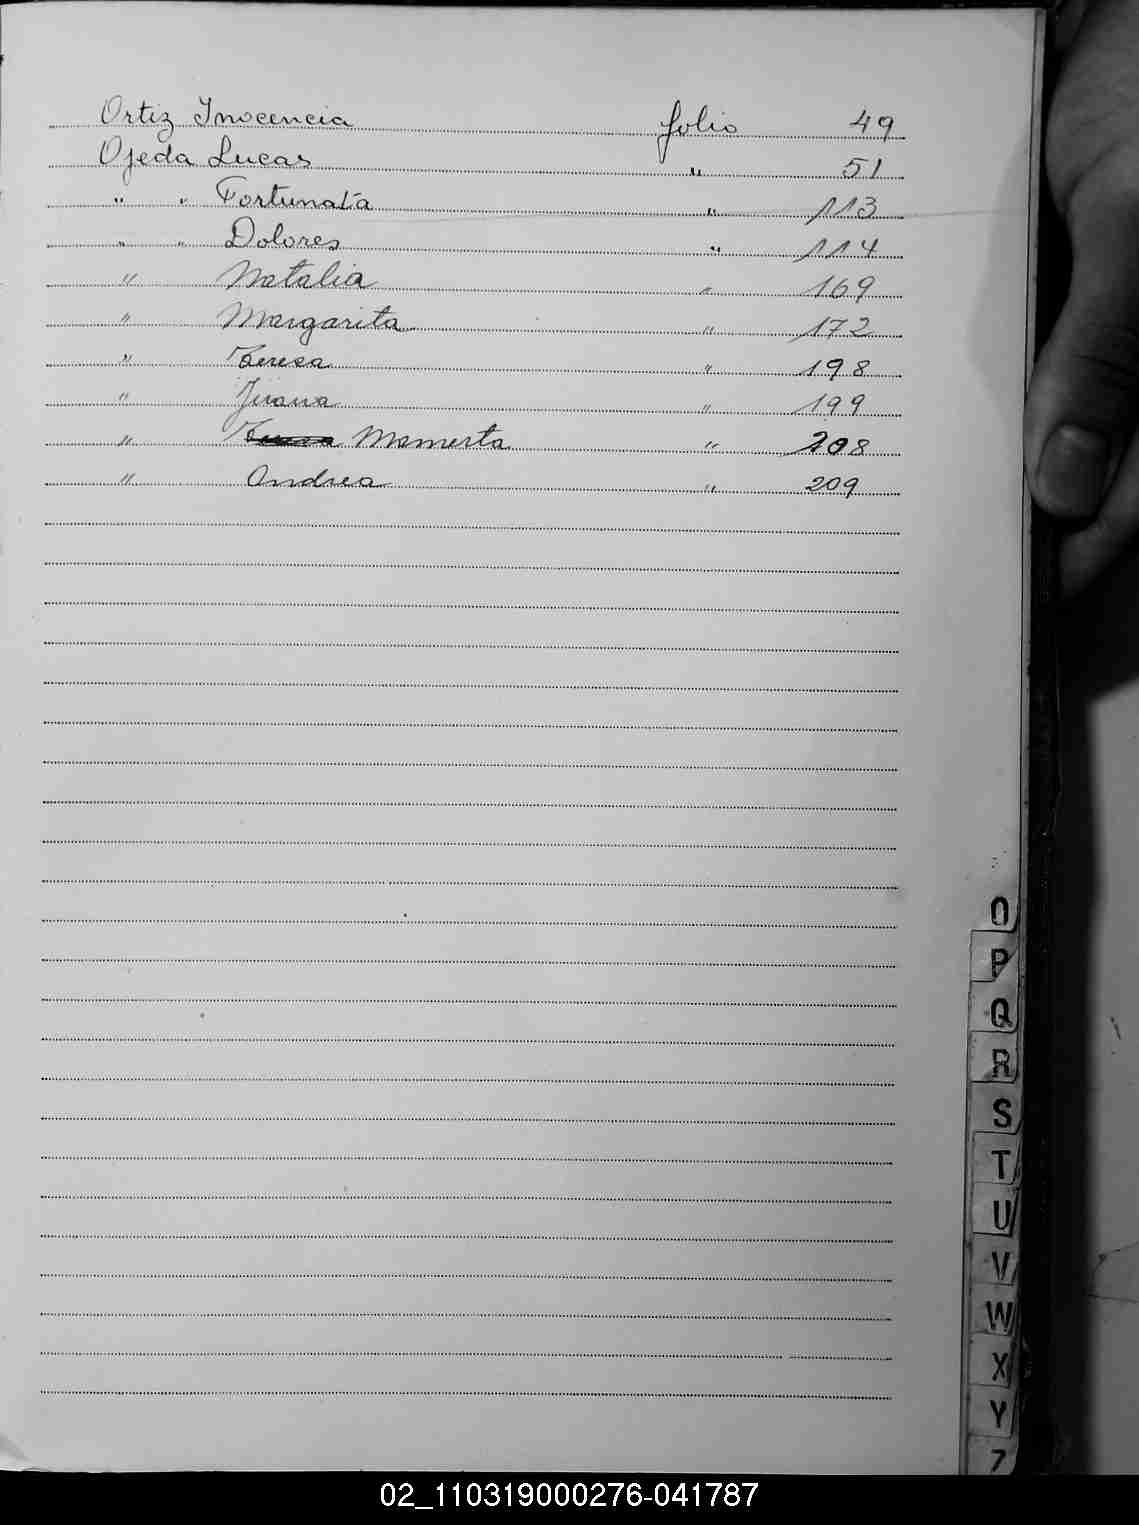 Ortiz Inocencia folio 49
Ojeda Lucas " 51
" " Fortunata " 113
" " Dolores " 114
" Natalia " 169
" Margarita " 172
" Teresa " 198
" Juana " 199
" Mamerta " 208
" Andrea " 209
O
P
Q
R
S
T
U
V
W
X
Y
Z
02_110319000276-041787